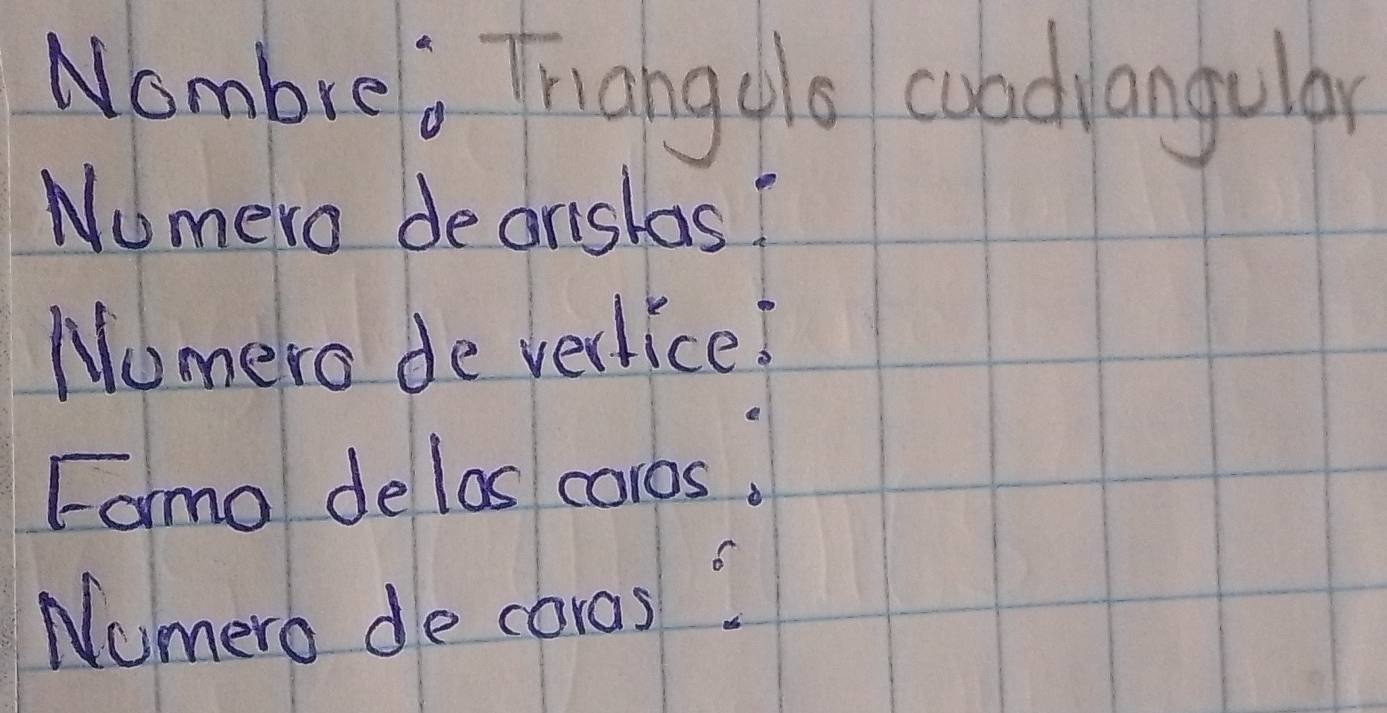 Nombre: Triangulo cuadrangular
Numero de aristas:
Numero de vertice:
Forma de las caras:
Numero de caras: